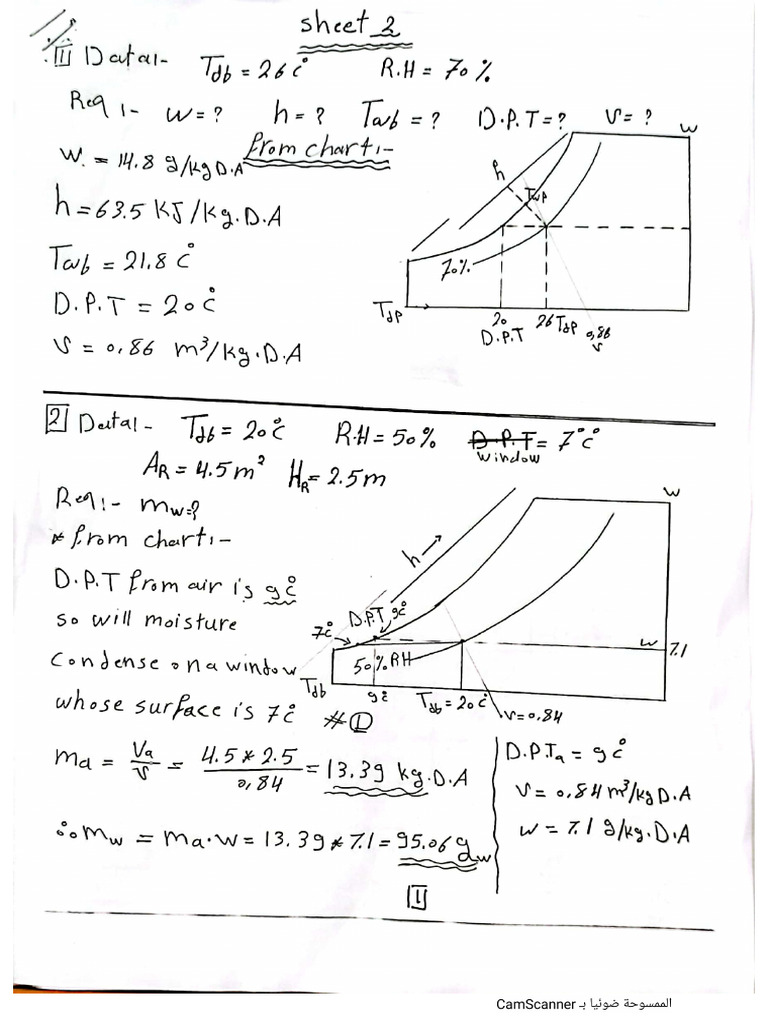 sheet 2
[1] Data:- Tdb = 26 c° R.H = 70 %
Req :- w = ? h = ? Twb = ? D.P.T = ? v = ?
from chart:-
w. = 14.8 g/kg D.A
h = 63.5 KJ/kg.D.A
Twb = 21.8 c°
D.P.T = 20 c°
v = 0,86 m³/kg.D.A
w
h
Twp
70%
Tdp
20
D.P.T
26 Tdp
0,86
v
[2] Data:- Tdb = 20 c° R.H = 50 % D.P.T = 7° c°
window
AR = 4.5 m² HR = 2.5 m
Req:- mw = ?
* from chart:-
D.P.T from air is 9 c°
so will moisture
condense on a window
whose surface is 7 c° # ①
w
h →
D.P.T 9 c°
7 c°
w 7.1
50% RH
Tdb
9 c°
Tdb = 20 c°
v = 0.84
ma = Va/v = 4.5 * 2.5 / 0,84 = 13.39 kg.D.A
∴ mw = ma.w = 13.39 * 7.1 = 95.06 gw
D.P.Ta = 9 c°
v = 0.84 m³/kg D.A
w = 7.1 g/kg.D.A
[1]
الممسوحة ضوئيا بـ CamScanner